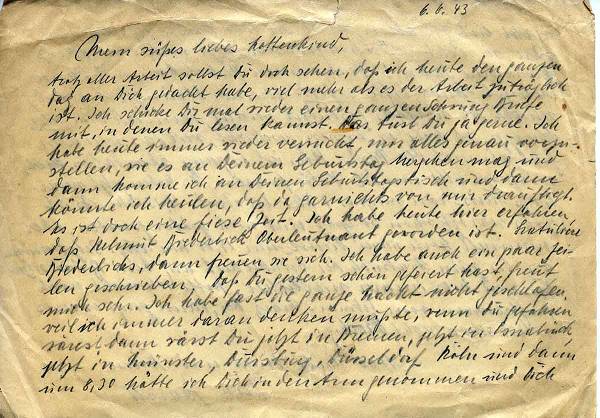 6.6.43
Mein süßes liebes Kattenkind,
trotz aller Arbeit sollst Du doch sehen, daß ich heute den ganzen
Tag an Dich gedacht habe, viel mehr als es der Arbeit zuträglich
ist. Ich schicke Dir mal wieder einen ganzen Schwung Briefe
mit, in denen Du lesen kannst. Das tust Du ja gerne. Ich
habe heute immer wieder versucht, mir alles genau vorzu-
stellen, wie es an Deinem Geburtstag hergehen mag und
dann komme ich an Deinen Geburtstagstisch und dann
könnte ich heulen, daß da garnichts von mir draufliegt.
Es ist doch eine fiese Zeit. Ich habe heute hier erfahren,
daß Helmut Biederbick Oberleutnant geworden ist. Gratuliere
Biederbicks, dann freuen sie sich. Ich habe auch ein paar Zei-
len geschrieben. Daß Du gestern schön gefeiert hast, freut
mich sehr. Ich habe fast die ganze Nacht nicht geschlafen,
weil ich immer daran denken mußte, wenn Du gefahren
wärest, dann wärst Du jetzt in Bremen, jetzt in Osnabrück
jetzt in Münster, Duisburg, Düsseldorf Köln und dann
um 8,30 hätte ich Dich in den Arm genommen und Dich